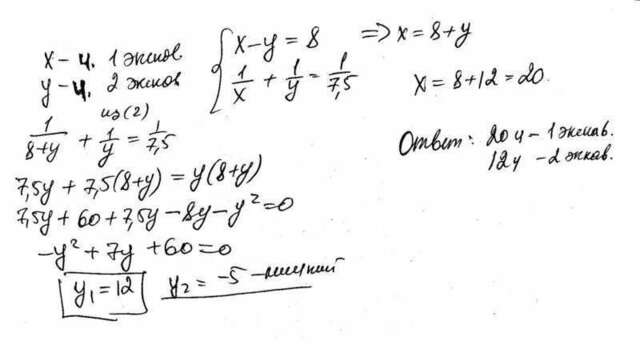 x - ч. 1 экскав
y - ч. 2 экскав
{ x - y = 8
1/x + 1/y = 1/7,5
=> x = 8 + y
x = 8 + 12 = 20.
из (2)
1/(8+y) + 1/y = 1/7,5
7,5y + 7,5(8+y) = y(8+y)
7,5y + 60 + 7,5y - 8y - y² = 0
-y² + 7y + 60 = 0
y₁ = 12 y₂ = -5 - лишний
Ответ: 20 ч - 1 экскав.
12 ч - 2 экскав.